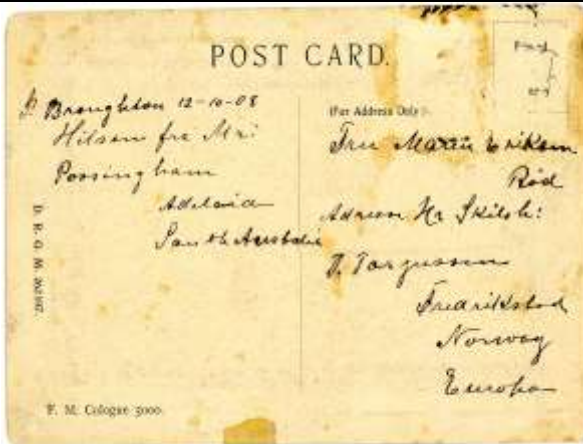 POST CARD.
Broughton 12-10-08
Hilsen fra Mr:
Possingham
Adelaid
South Australie
D. R. G. M. 262107.
F. M. Cologne 5000.
(For Address Only).
Fru Martin Eriksen
Röd
Adresse Hr Skilsh:
T. Torgussen
Fredrikstad
Norway
Europa